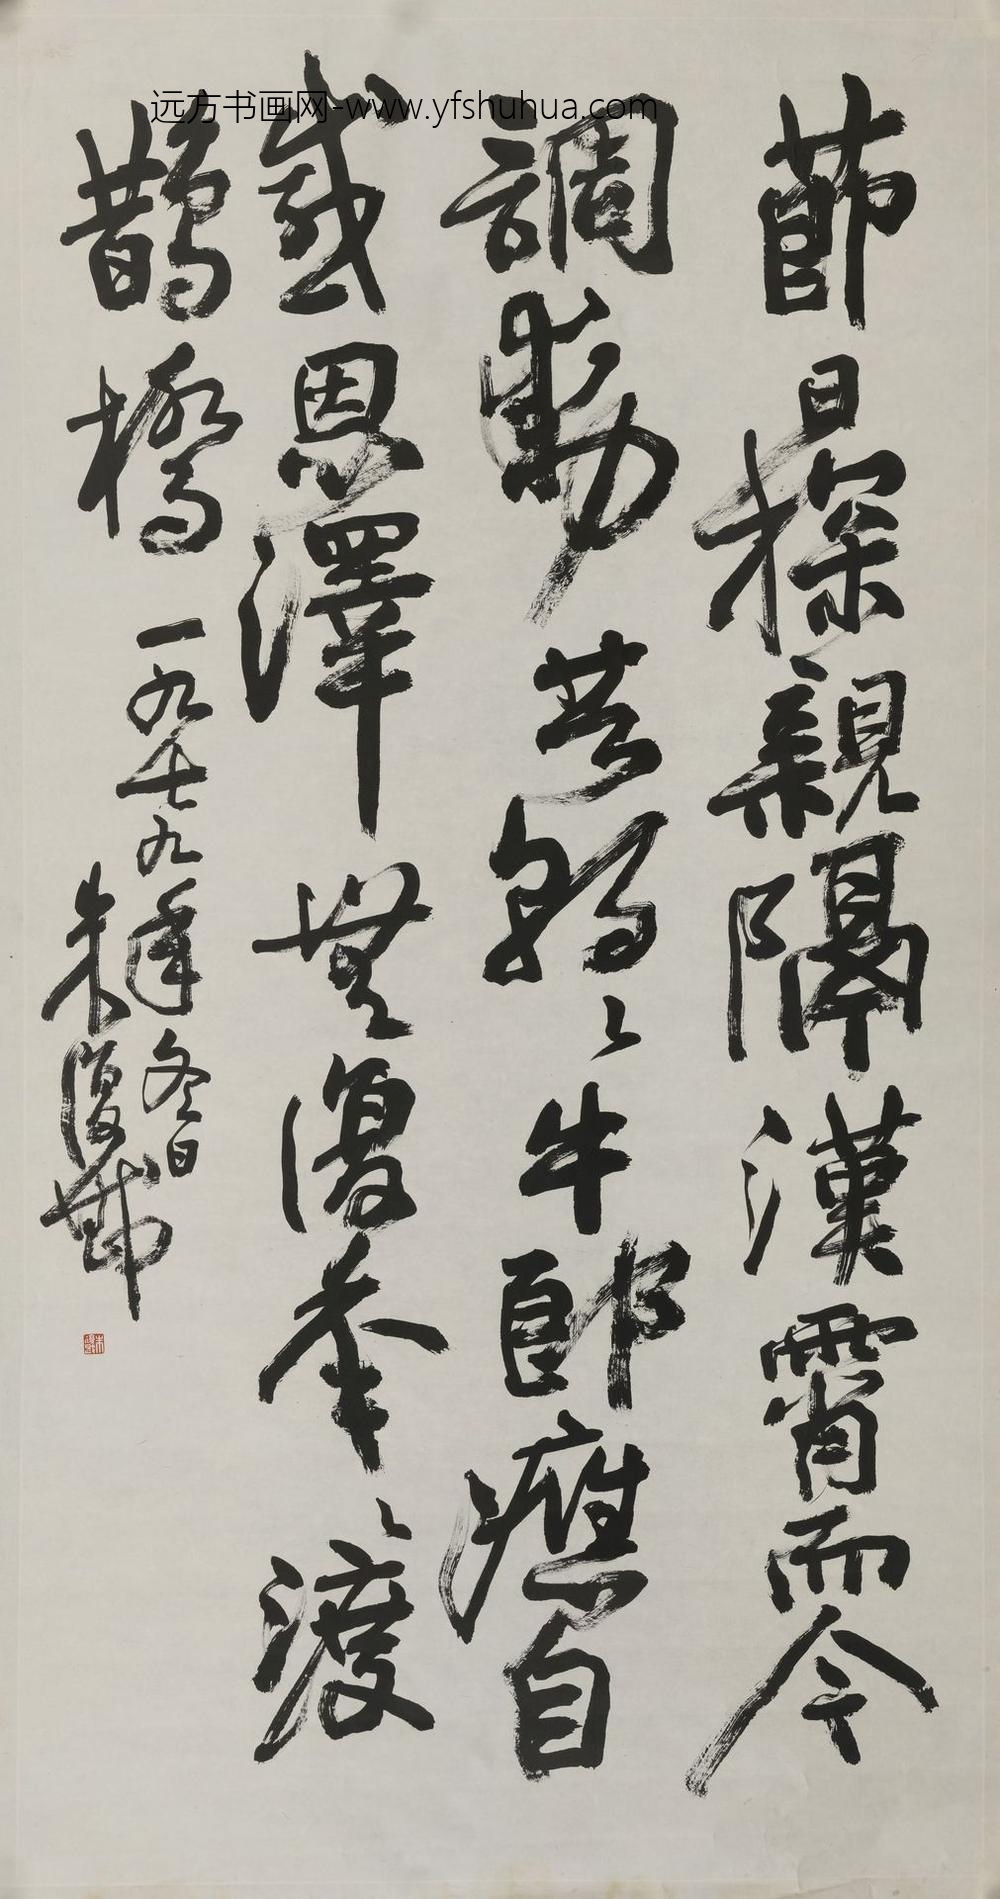 远方书画网-www.yfshuhua.com
節日探親隔漢霄而今
調動朝々牛郎應自
感恩澤無復秊々渡
鵲橋 一九七九年冬日
朱復戡